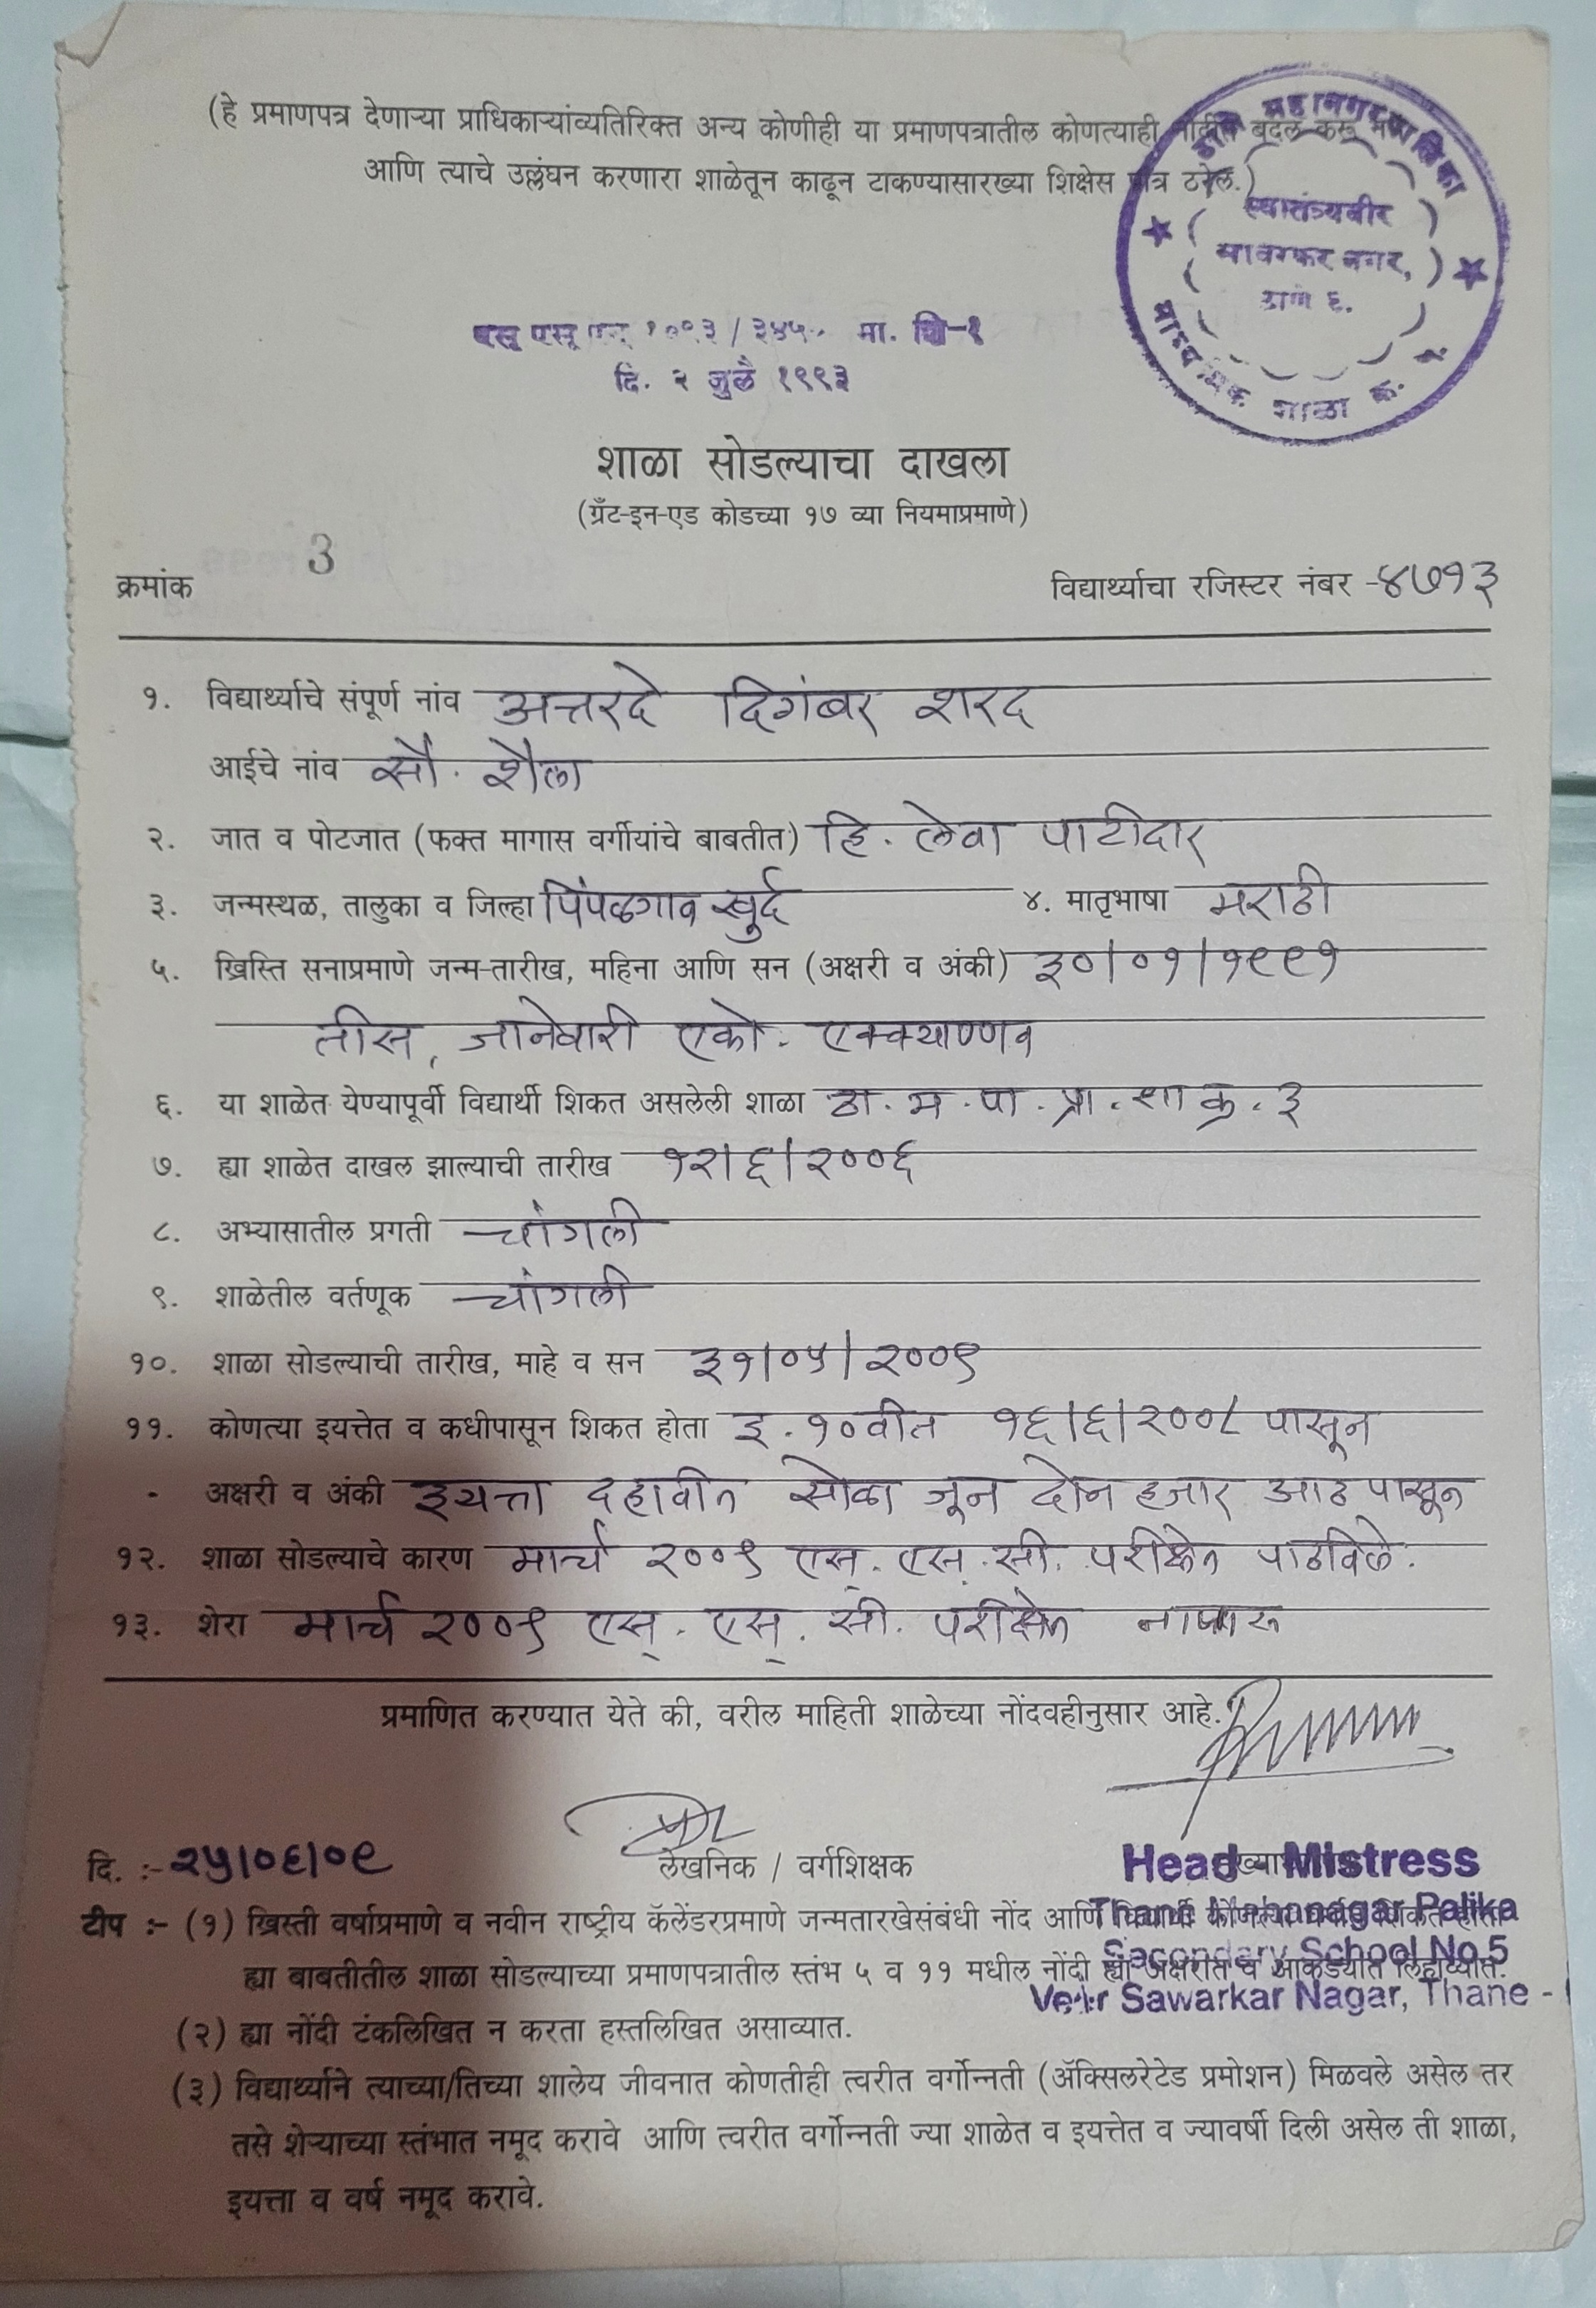 (हे प्रमाणपत्र देणाऱ्या प्राधिकाऱ्यांव्यतिरिक्त अन्य कोणीही या प्रमाणपत्रातील कोणत्याही बदल करू
आणि त्याचे उल्लंघन करणारा शाळेतून काढून टाकण्यासारख्या शिक्षेस पात्र ठरेल.)
महानगरपालिका
स्वातंत्र्यवीर
सावरकर नगर,
ठाणे ६.
माध्यमिक शाळा क्र.
मा. शि-१
दि. २ जुलै १९९३
शाळा सोडल्याचा दाखला
(ग्रँट-इन-एड कोडच्या १७ व्या नियमाप्रमाणे)
3
क्रमांक विद्यार्थ्याचा रजिस्टर नंबर -४७१३
१. विद्यार्थ्याचे संपूर्ण नांव अत्तरदे दिगंबर शरद
आईचे नांव सौ. शैला
२. जात व पोटजात (फक्त मागास वर्गीयांचे बाबतीत) हि. लेवा पाटीदार
३. जन्मस्थळ, तालुका व जिल्हा पिंपळगाव खुर्द ४. मातृभाषा मराठी
५. ख्रिस्ति सनाप्रमाणे जन्म-तारीख, महिना आणि सन (अक्षरी व अंकी) ३०/०१/१९९१
तीस, जानेवारी एको. एक्क्याण्णव
६. या शाळेत येण्यापूर्वी विद्यार्थी शिकत असलेली शाळा ठा. म. पा. प्रा. शा क्र. ३
७. ह्या शाळेत दाखल झाल्याची तारीख १२/६/२००६
८. अभ्यासातील प्रगती चांगली
९. शाळेतील वर्तणूक चांगली
१०. शाळा सोडल्याची तारीख, माहे व सन ३१/०५/२००९
११. कोणत्या इयत्तेत व कधीपासून शिकत होता इ. १०वीत १६/६/२००८ पासून
अक्षरी व अंकी इयत्ता दहावीत सोळा जून दोन हजार आठ पासून
१२. शाळा सोडल्याचे कारण मार्च २००९ एस्. एस्. सी. परीक्षेत पाठविले.
१३. शेरा मार्च २००९ एस्. एस्. सी. परीक्षेत नापास
प्रमाणित करण्यात येते की, वरील माहिती शाळेच्या नोंदवहीनुसार आहे.
दि. :- २५/०६/०९ लेखनिक / वर्गशिक्षक Head Mistress
Thane Mahanagar Palika
Secondary School No.5
Veer Sawarkar Nagar, Thane -
टीप :- (१) ख्रिस्ती वर्षाप्रमाणे व नवीन राष्ट्रीय कॅलेंडरप्रमाणे जन्मतारखेसंबंधी नोंद आणि
ह्या बाबतीतील शाळा सोडल्याच्या प्रमाणपत्रातील स्तंभ ५ व ११ मधील नोंदी ह्या अक्षरात व आकड्यात लिहाव्यात.
(२) ह्या नोंदी टंकलिखित न करता हस्तलिखित असाव्यात.
(३) विद्यार्थ्याने त्याच्या/तिच्या शालेय जीवनात कोणतीही त्वरीत वर्गोन्नती (ॲक्सिलरेटेड प्रमोशन) मिळवले असेल तर
तसे शेऱ्याच्या स्तंभात नमूद करावे आणि त्वरीत वर्गोन्नती ज्या शाळेत व इयत्तेत व ज्यावर्षी दिली असेल ती शाळा,
इयत्ता व वर्ष नमूद करावे.